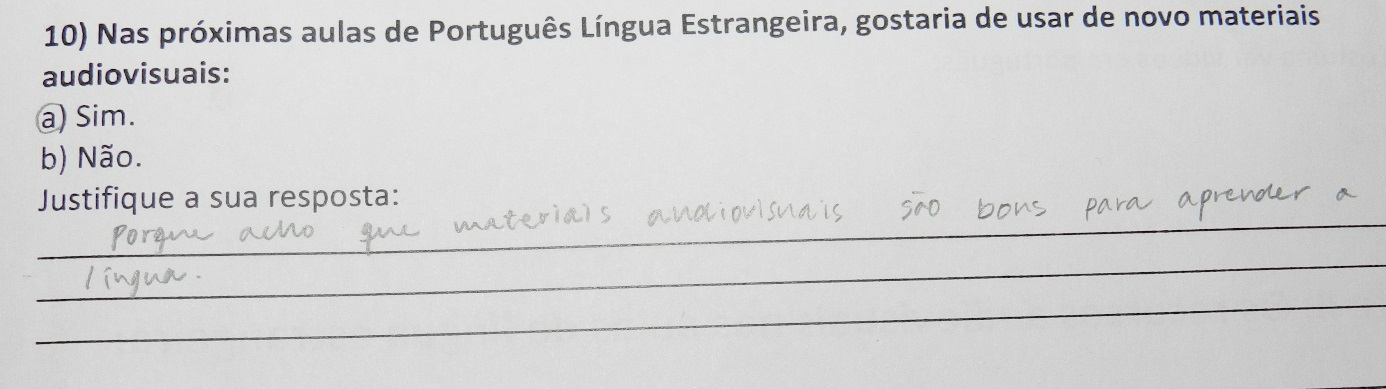 10) Nas próximas aulas de Português Língua Estrangeira, gostaria de usar de novo materiais
audiovisuais:
a) Sim.
b) Não.
Justifique a sua resposta:
Porque acho que materiais audiovisuais são bons para aprender a
língua.